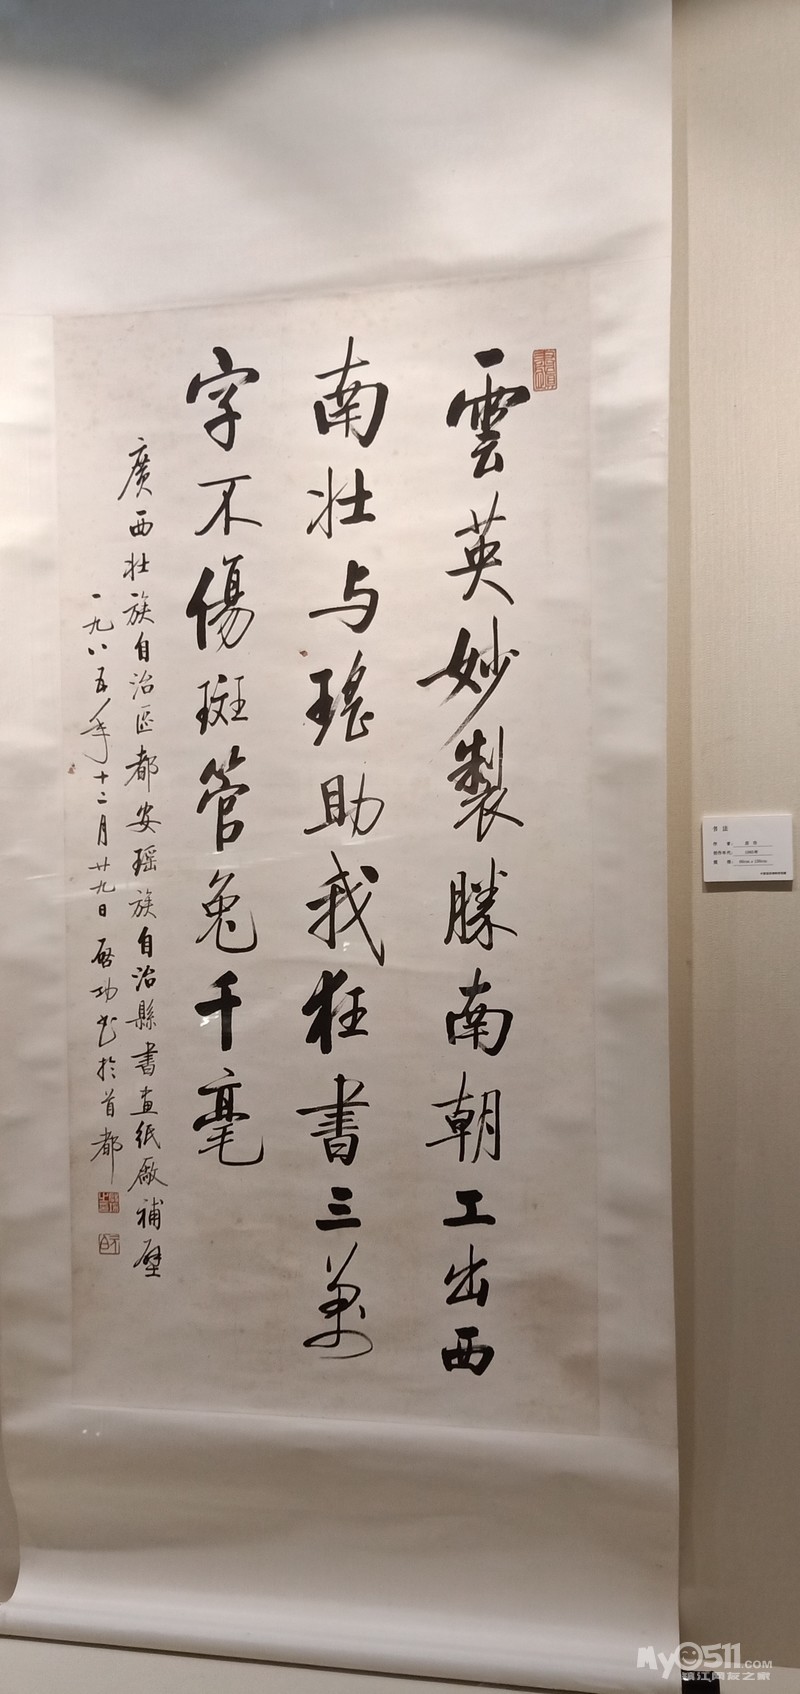 雲英妙製勝南朝工出西
南壮与瑤助我狂書三萬
字不傷斑管兔千毫
廣西壮族自治區都安瑶族自治縣書畫紙廠補壁
一九八五年十二月廿九日啓功书於首都
书 法
作 者： 启 功
创作年代： 1985年
规 格：
My0511.COM
镇江网友之家